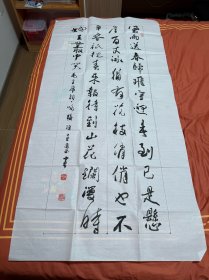 風雨送春歸飛雪迎春到已是懸
崖百丈冰猶有花枝俏俏也不
爭春祇把春來報待到山花爛漫時
她在叢中笑
毛主席詞咏梅
書